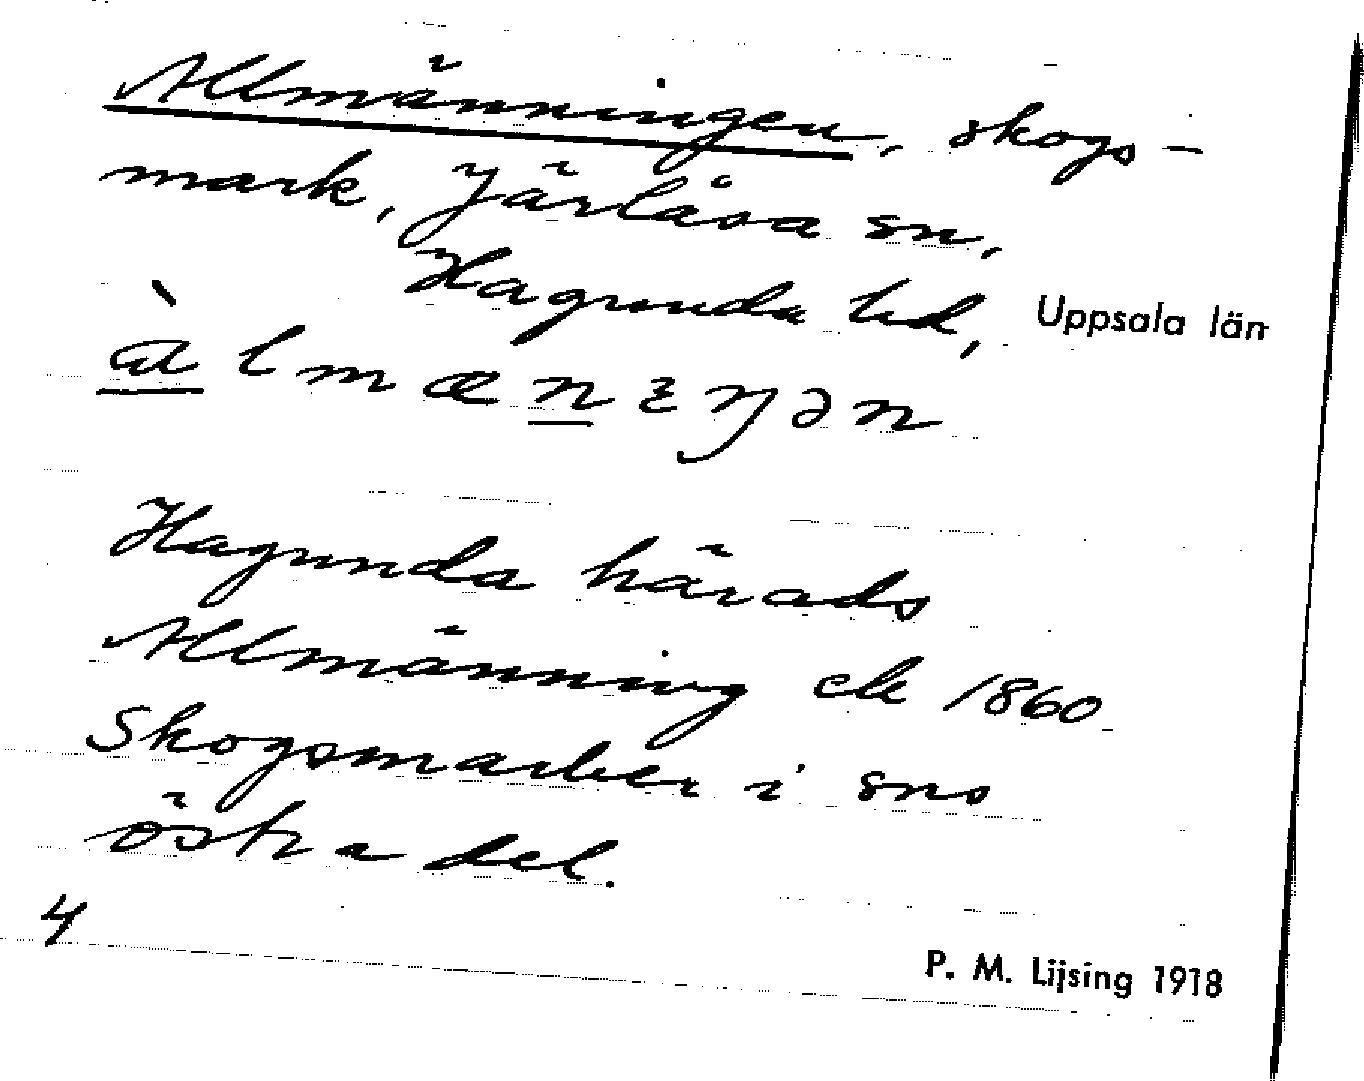 Allmänningen, skogs-
mark, Järlåsa sn,
Hagunda hd, Uppsala län
àlmænıŋən
Hagunda härads
Allmänning ek 1860
Skogsmarker i sns
östra del.
4
P. M. Lijsing 1918